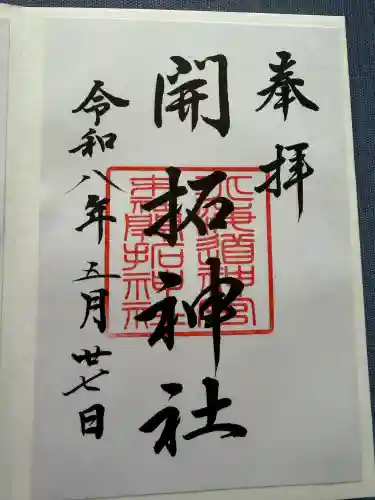 奉拝
開拓神社
令和八年五月廿七日
北海道神宮
末社開拓神社